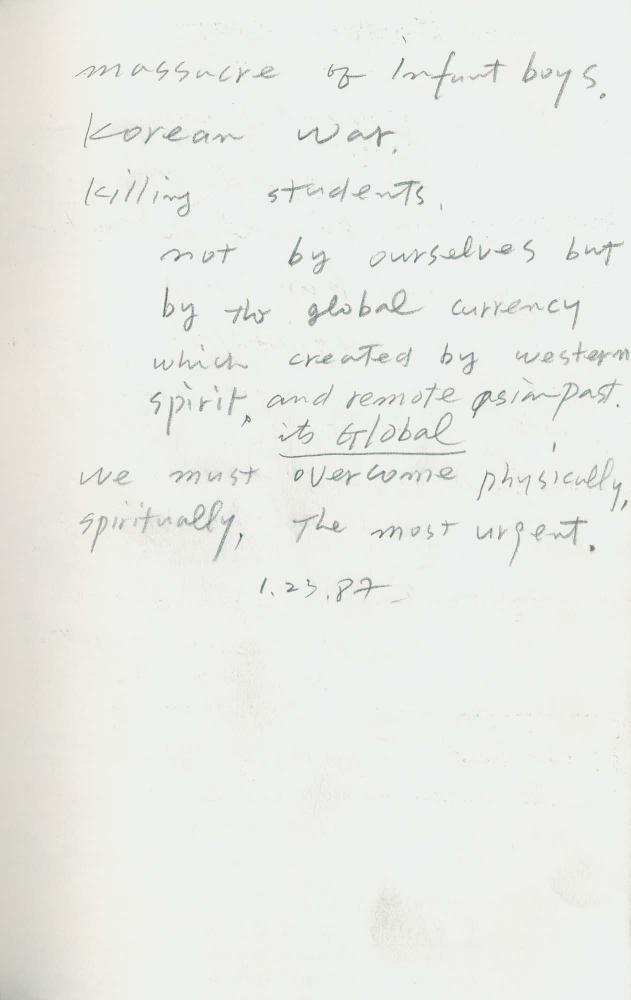 massacre of Infant boys.
Korean War.
killing students.
not by ourselves but
by the global currency
which created by western
spirit, and remote asian past.
its Global
we must overcome physically,
spiritually, The most urgent.
1.23.87